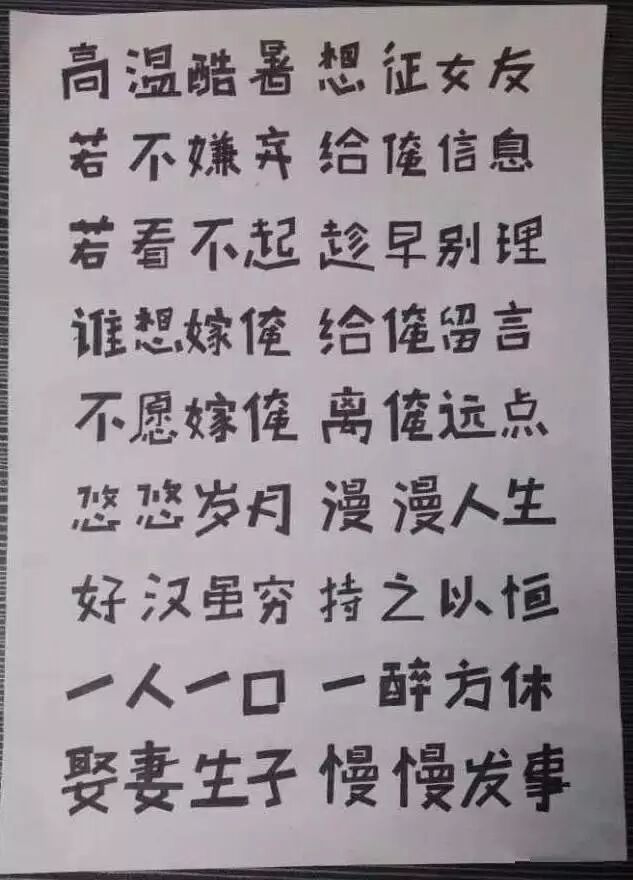 高温酷暑 想征女友
若不嫌弃 给俺信息
若看不起 趁早别理
谁想嫁俺 给俺留言
不愿嫁俺 离俺远点
悠悠岁月 漫漫人生
好汉虽穷 持之以恒
一人一口 一醉方休
娶妻生子 慢慢发事